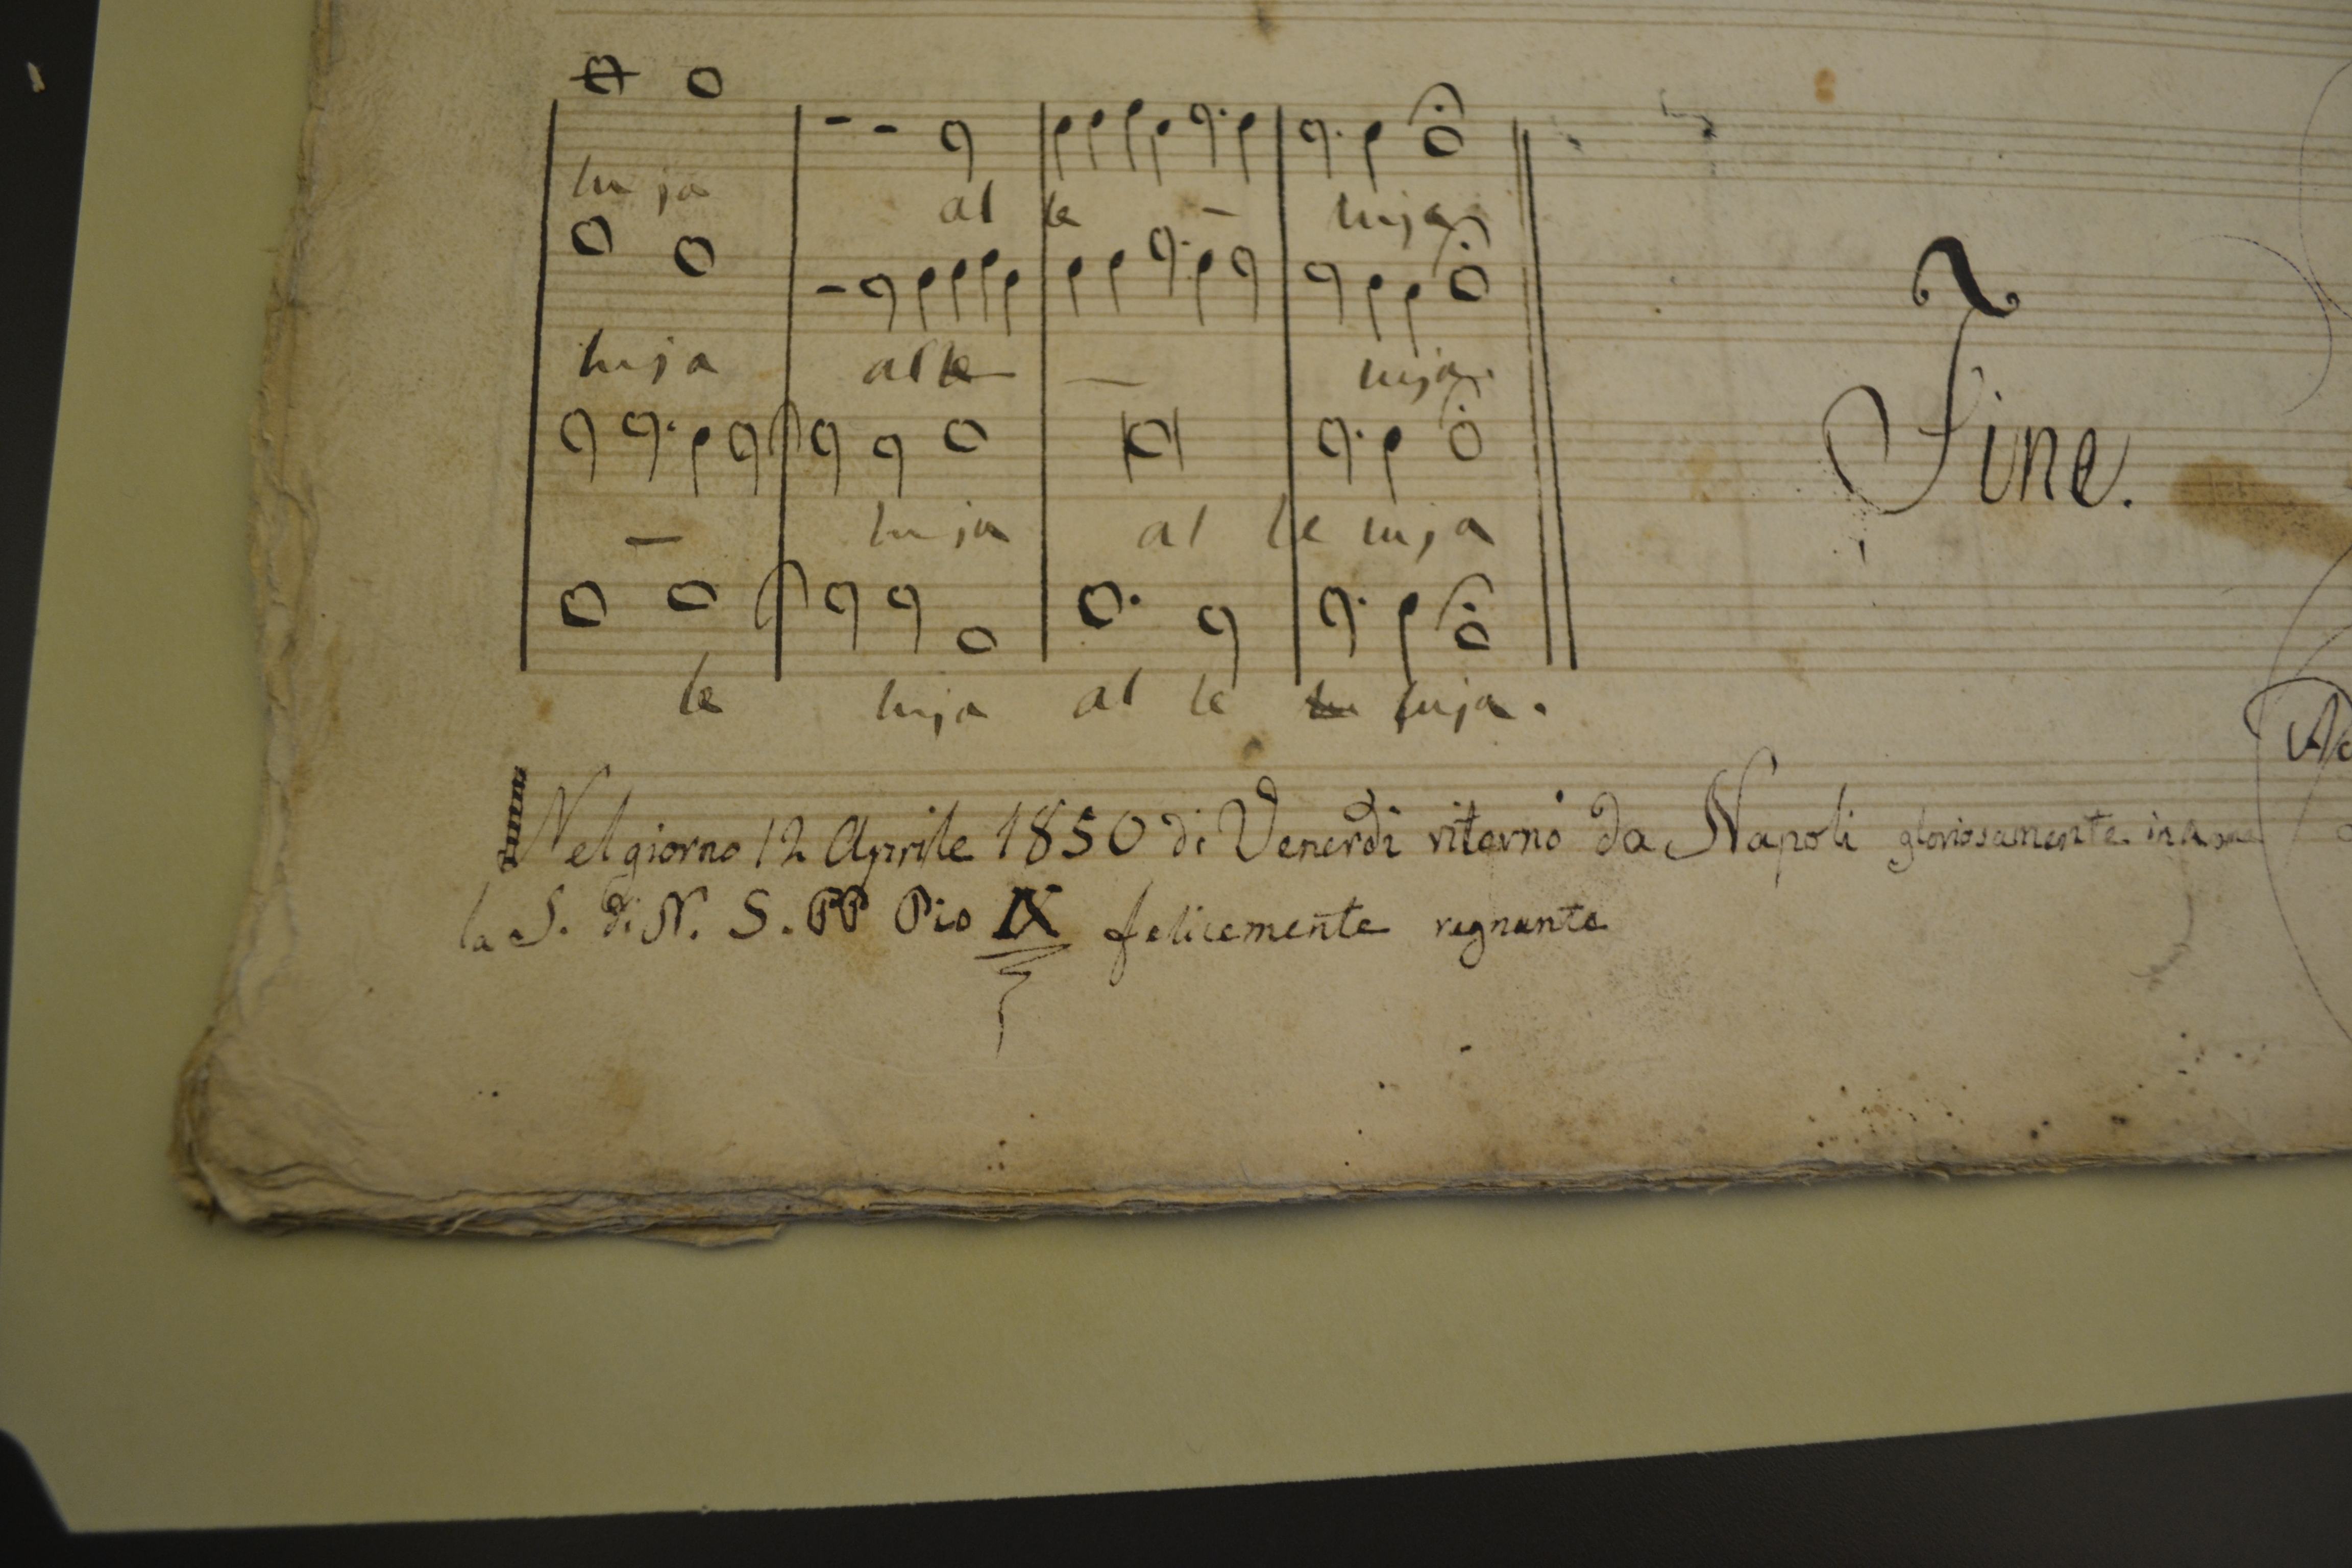 lu ja al le - luja
luja alle — — luja.
— luja al le luja
le luja al le lu luja.
Fine.
Nel giorno 12 Aprile 1850 di Venerdì ritornò da Napoli gloriosamente in
la S. di N. S. PP Pio IX felicemente regnante